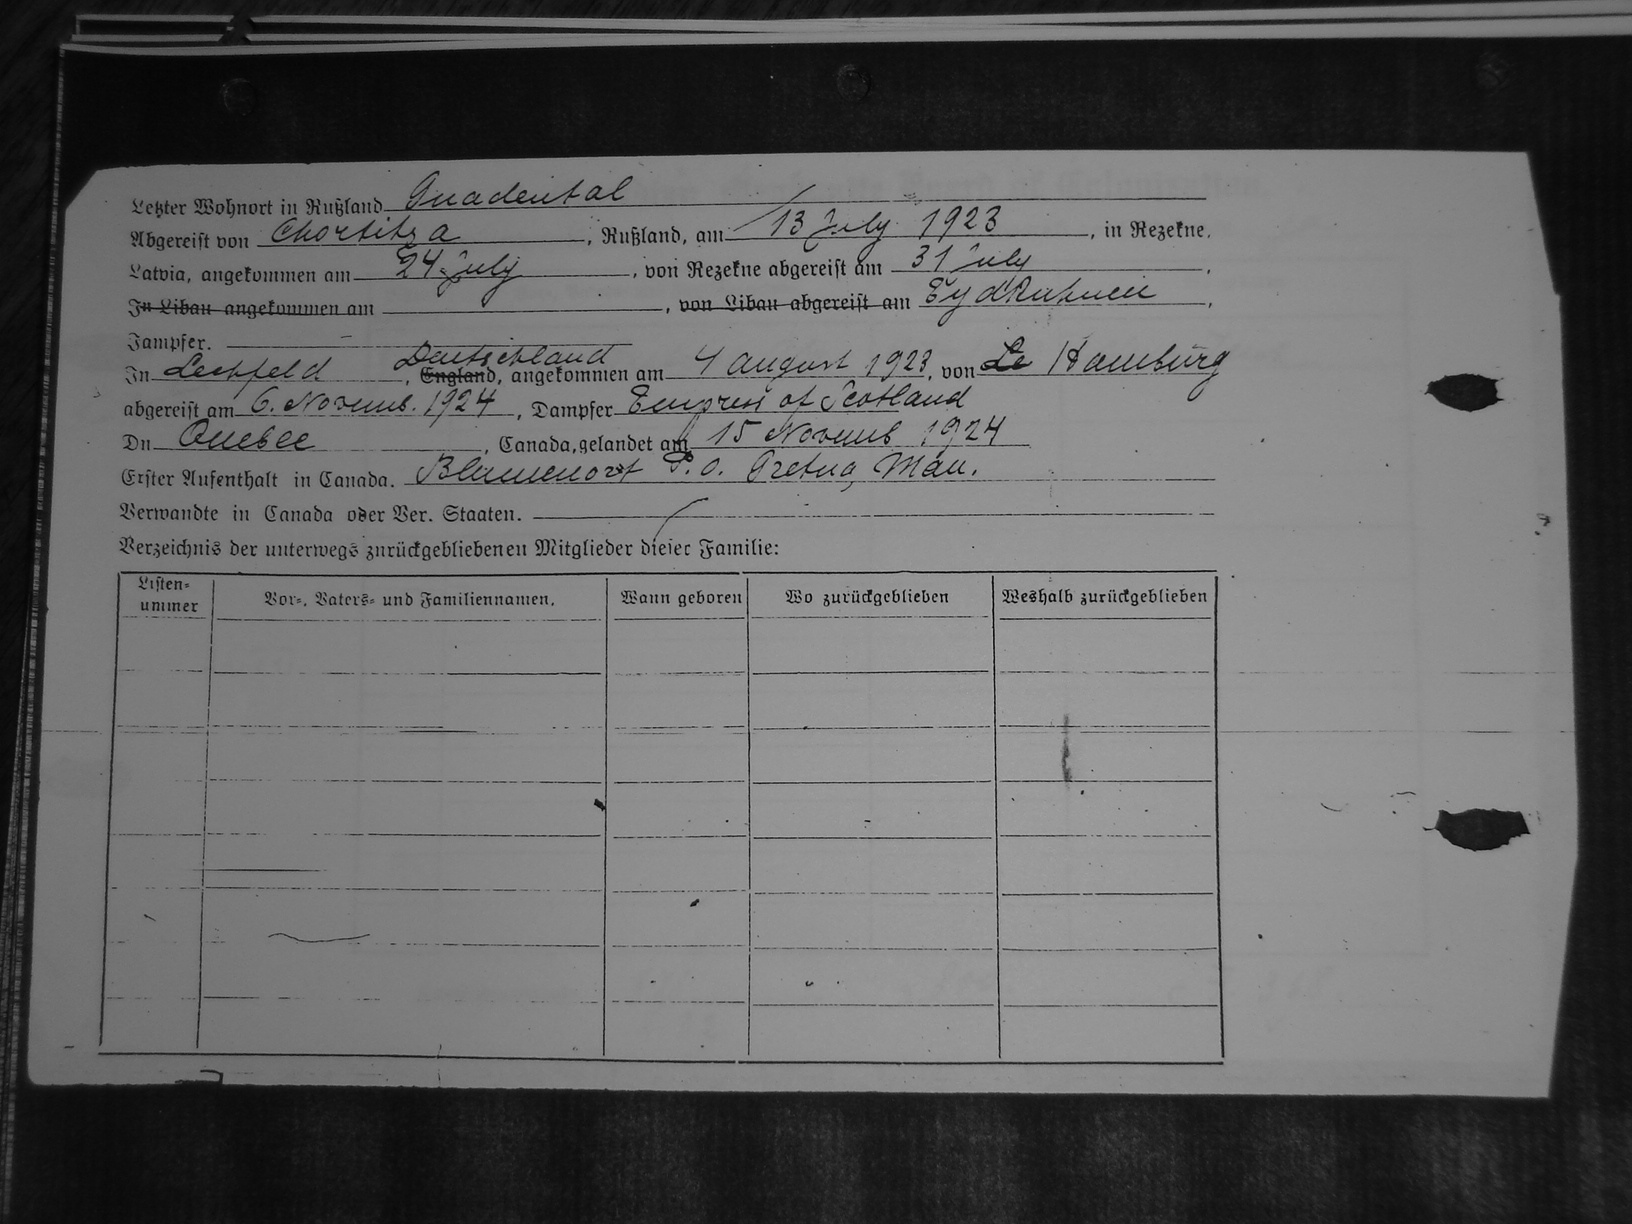 Letzter Wohnort in Rußland Gnadental
Abgereist von Chortitza, Rußland, am 13 July 1923, in Rezekne,
Latvia, angekommen am 24 July, von Rezekne abgereist am 31 July,
In Libau angekommen am , von Libau abgereist am Eydkuhnen,
Dampfer.
In Lechfeld Deutschland, England, angekommen am 4 August 1923, von Le Hamburg
abgereist am 6. Novemb. 1924, Dampfer Empress of Scotland
In Quebec, Canada, gelandet am 15 Novemb 1924
Erster Aufenthalt in Canada. Blumenort P.O. Gretna, Man.
Verwandte in Canada oder Ver. Staaten.
Verzeichnis der unterwegs zurückgebliebenen Mitglieder dieser Familie:
Listen-
nummer
Vor-, Vaters- und Familiennamen.
Wann geboren
Wo zurückgeblieben
Weshalb zurückgeblieben